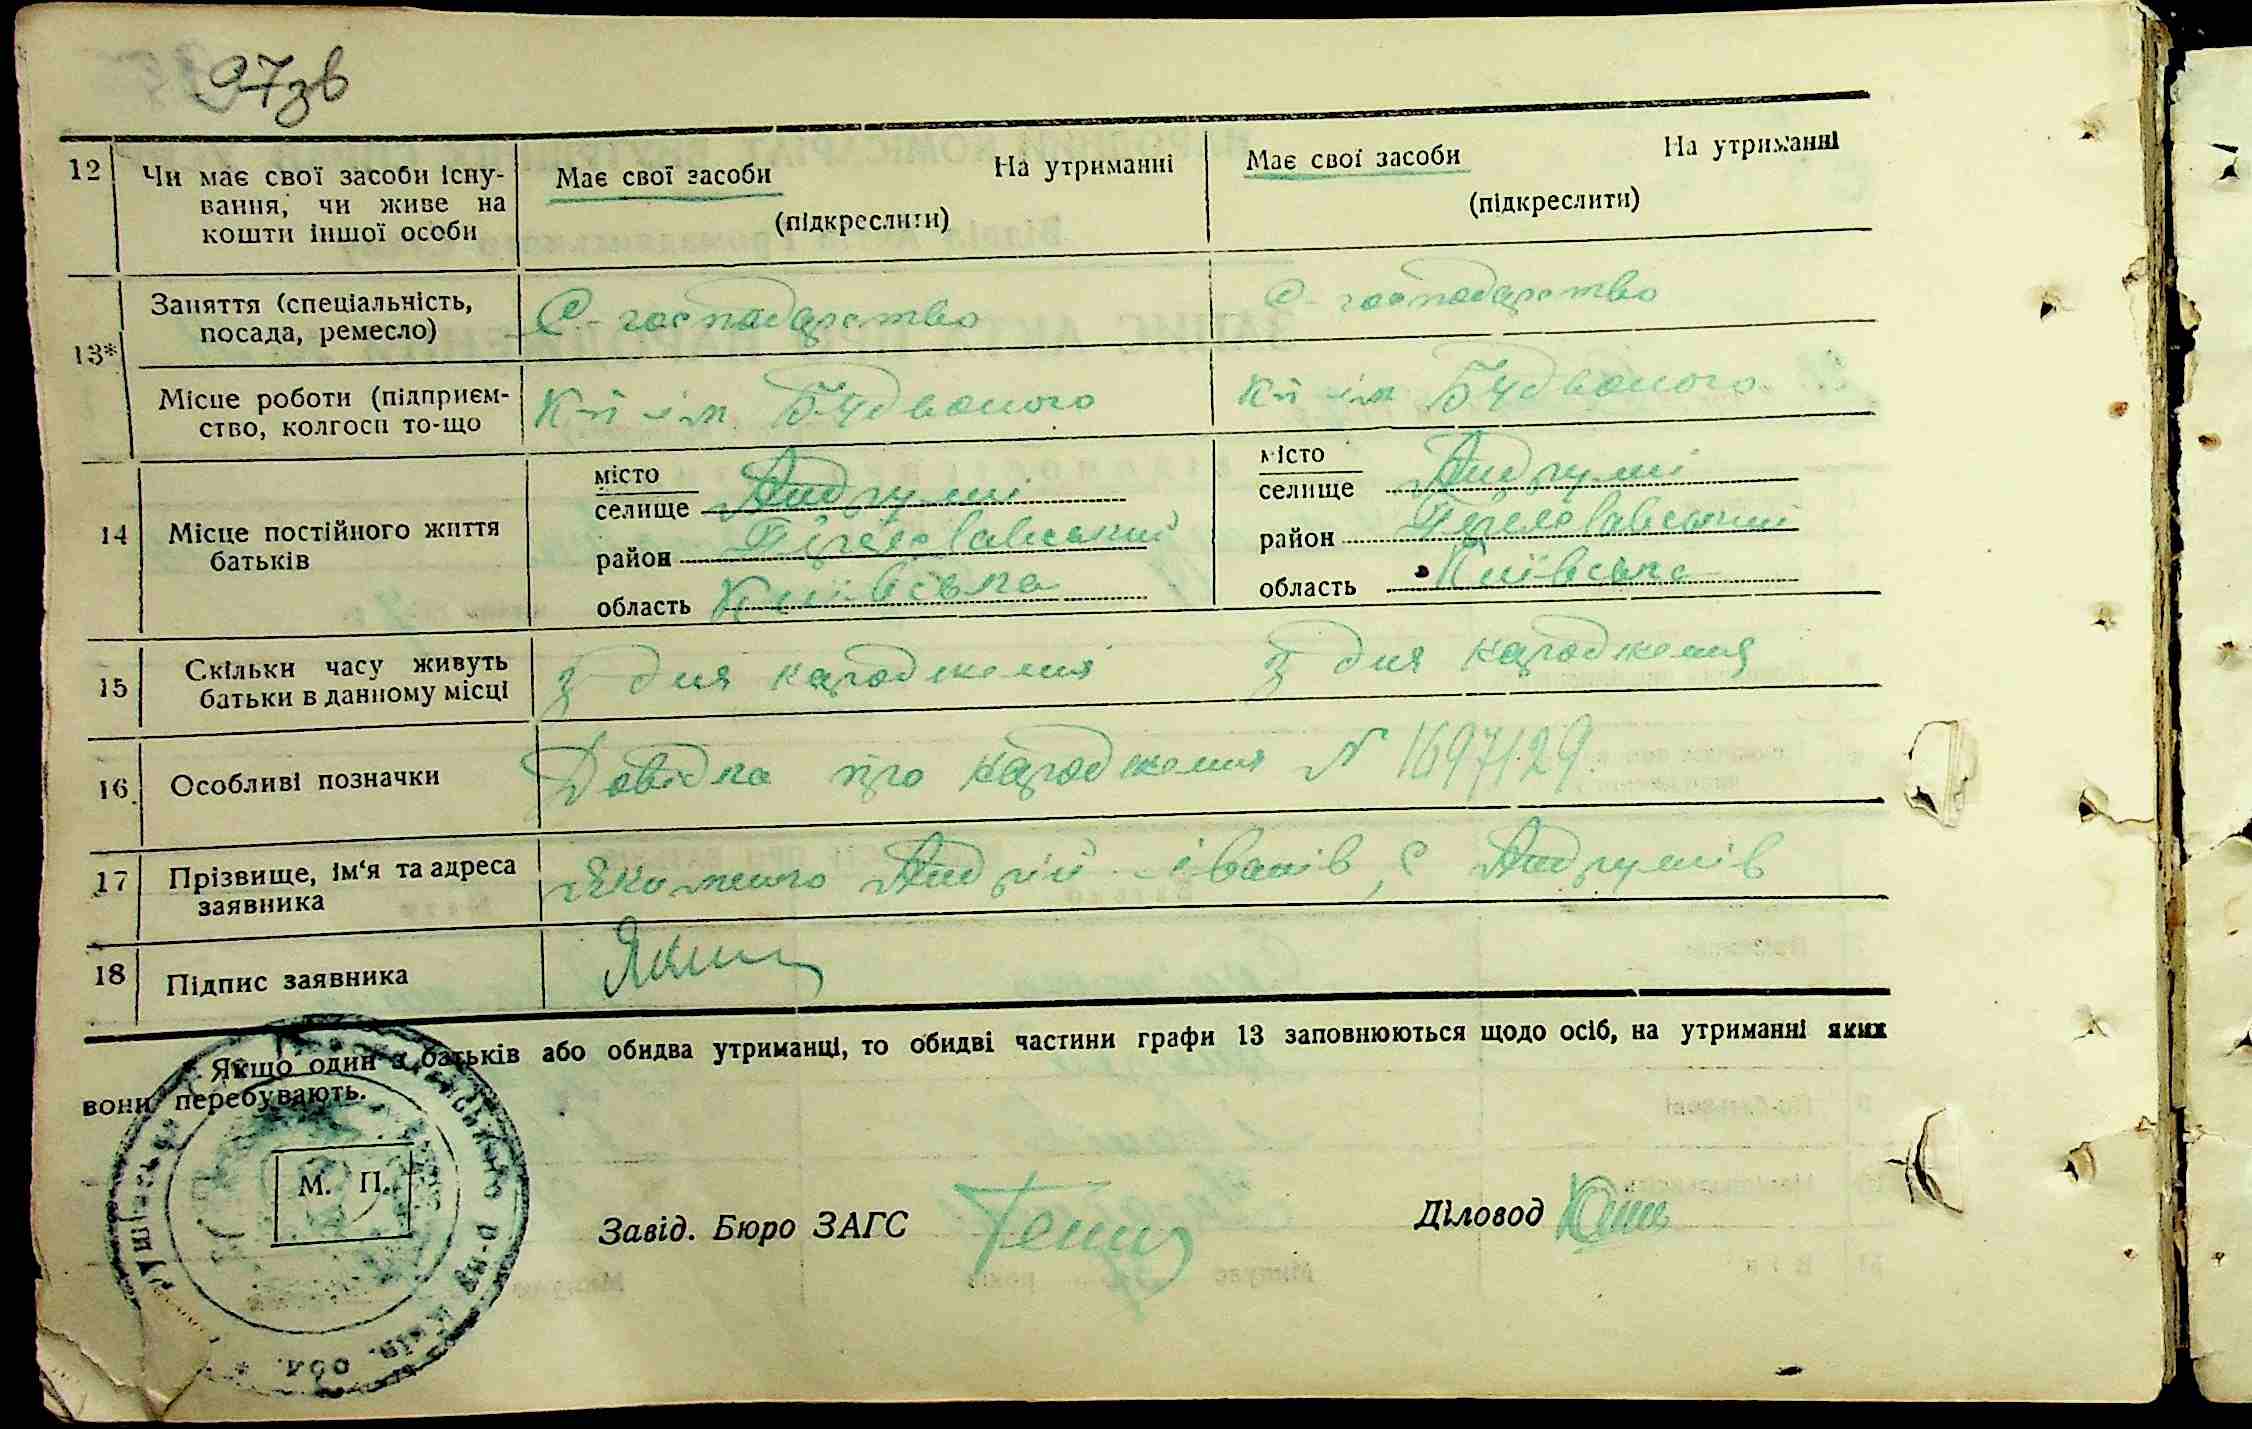 97зв
12 Чи має свої засоби існу- Має свої засоби На утриманні Має свої засоби На утриманні
вання, чи живе на (підкреслити) (підкреслити)
кошти іншої особи
13* Заняття (спеціальність, С-господарство С-господарство
посада, ремесло)
Місце роботи (підприєм- К-п ім Будьоного К-п ім Будьоного
ство, колгосп то-що
14 Місце постійного життя батьків
місто
селище Андруші
район Переяславський
область Київська
місто
селище Андруші
район Переяславський
область Київська
15 Скільки часу живуть з дня народження з дня народження
батьки в данному місці
16. Особливі позначки Довідка про народження № 1697/29.
17 Прізвище, ім‘я та адреса Якименко Андрій Іванів, с Андрушів
заявника
18 Підпис заявника
Якщо один з батьків або обидва утриманці, то обидві частини графи 13 заповнюються щодо осіб, на утриманні яких
вони перебувають.
М. П.
Завід. Бюро ЗАГС
Діловод
р-ну Київ. обл. *